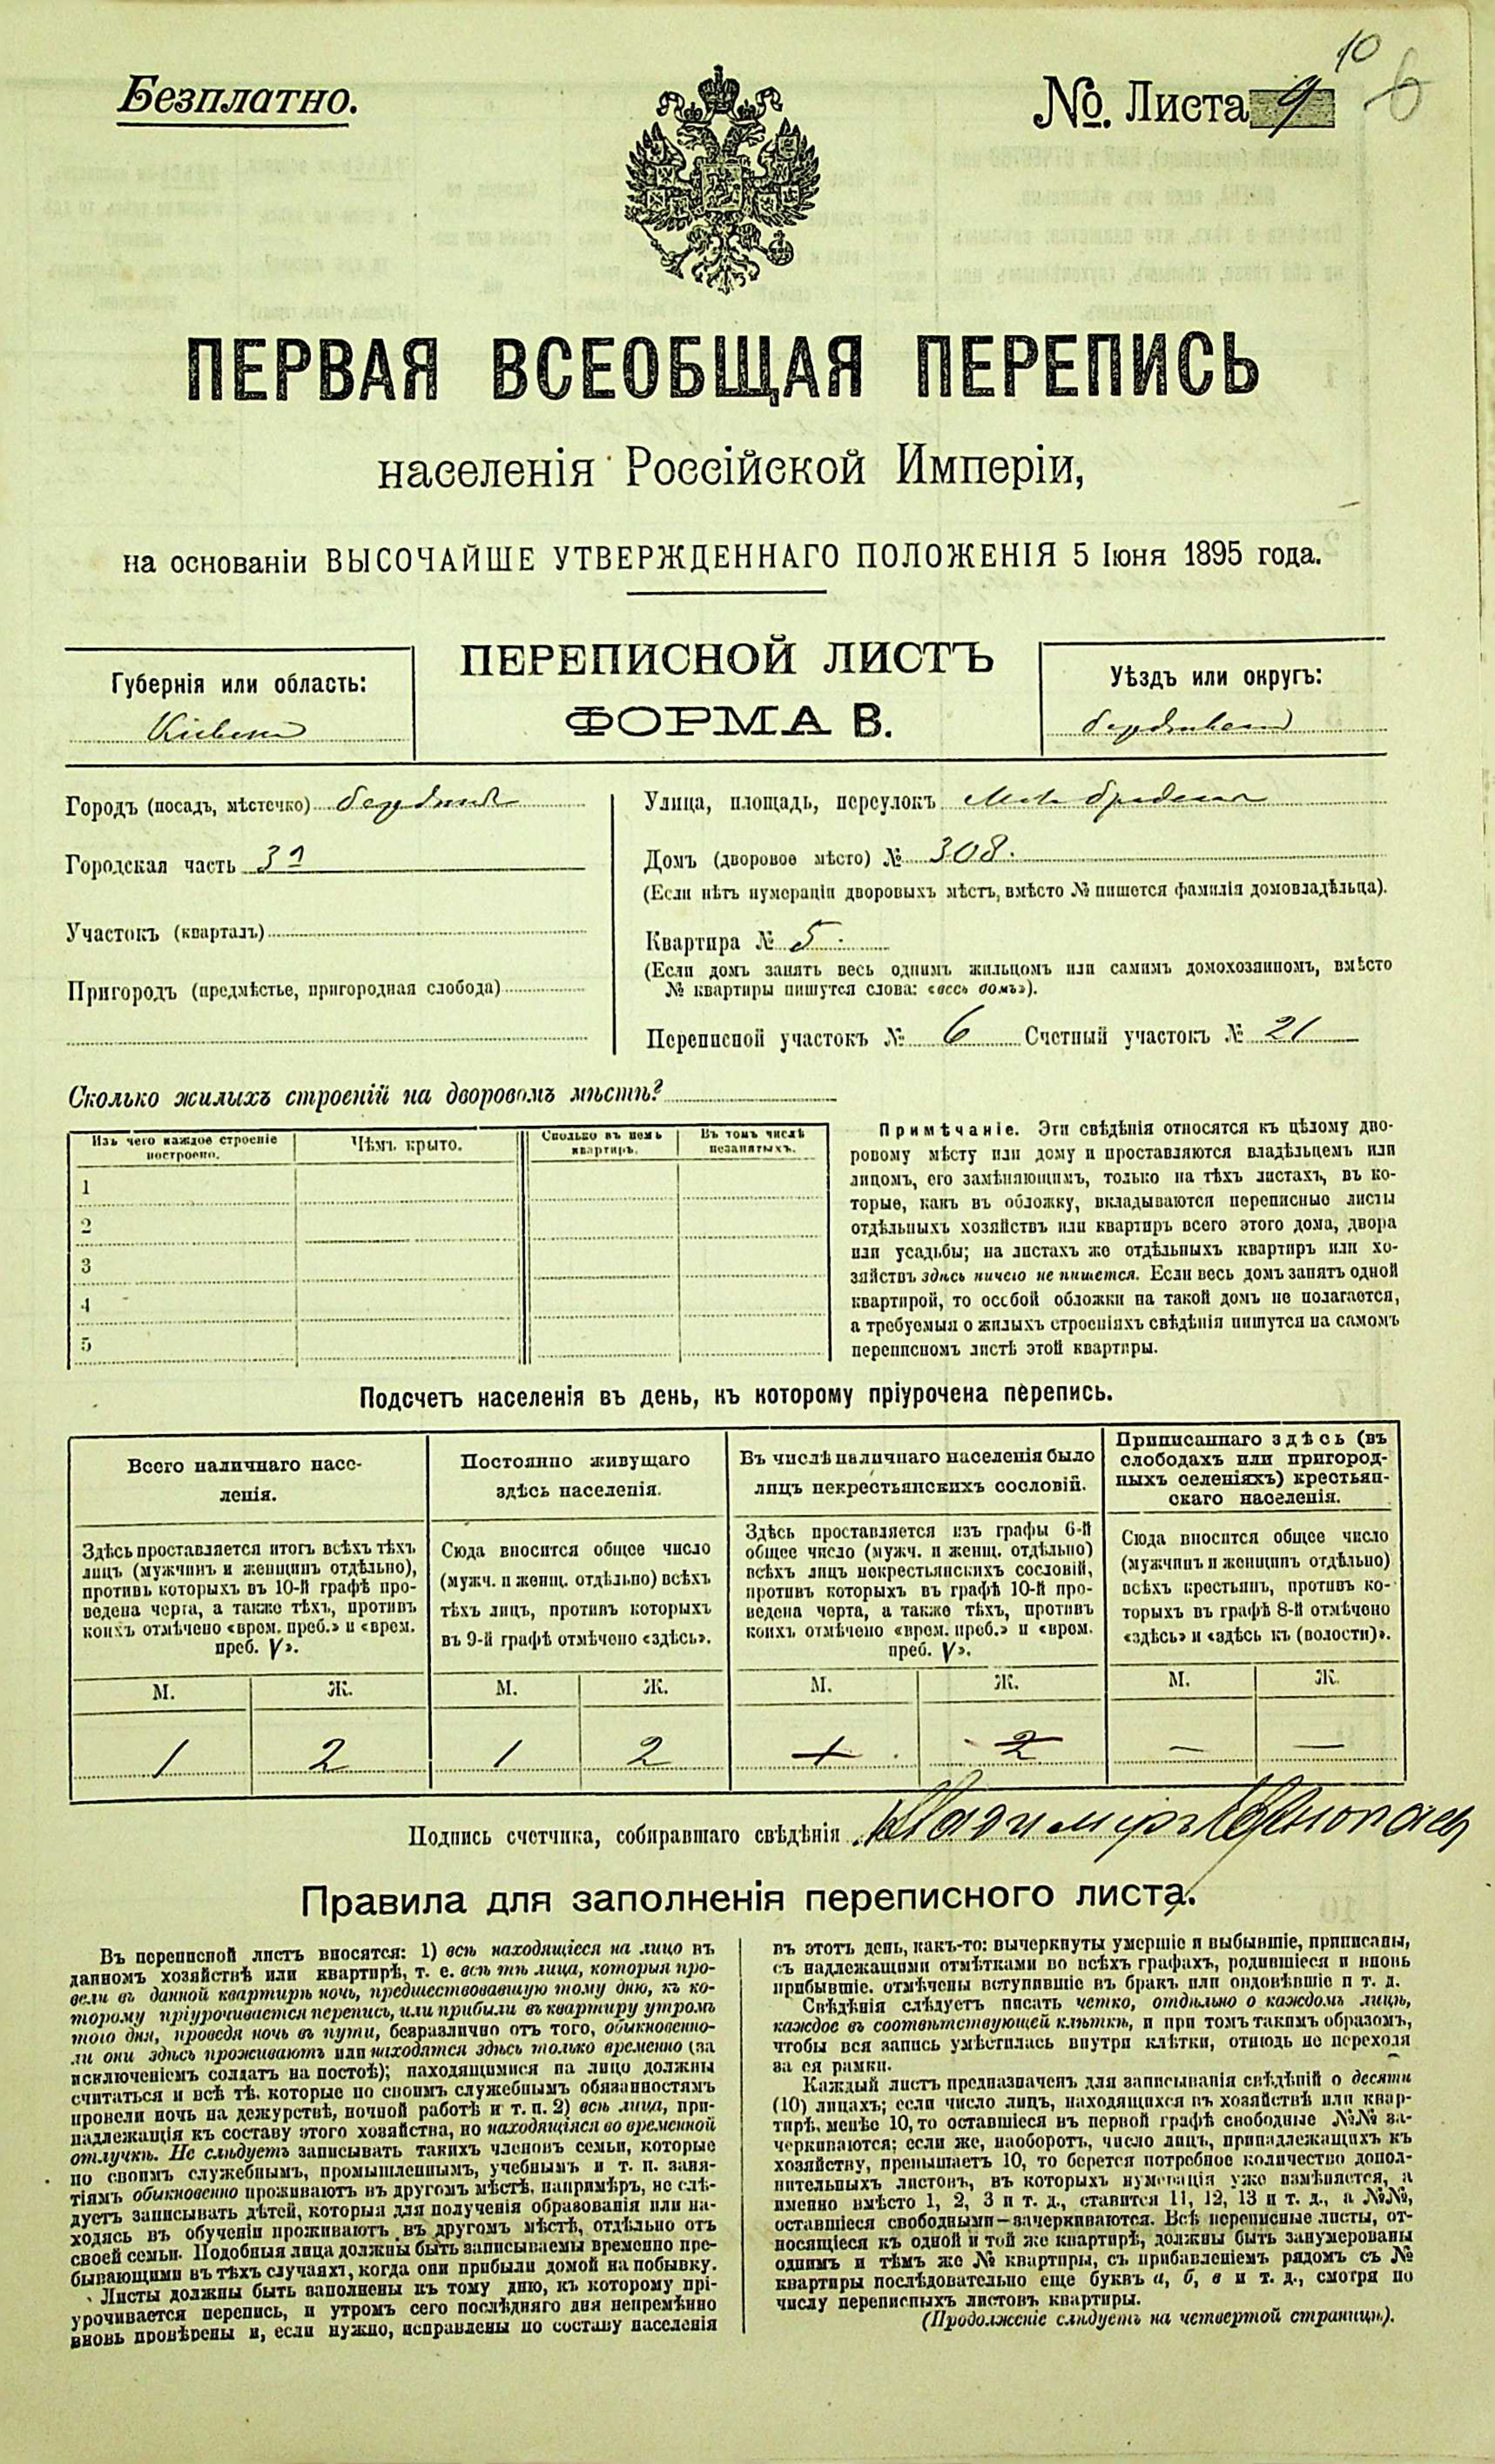 Безплатно.
№. Листа 9
10
ПЕРВАЯ ВСЕОБЩАЯ ПЕРЕПИСЬ
населенія Россійской Имперіи,
на основаніи ВЫСОЧАЙШЕ УТВЕРЖДЕННАГО ПОЛОЖЕНІЯ 5 Іюня 1895 года.
ПЕРЕПИСНОЙ ЛИСТЪ
ФОРМА В.
Губернія или область:
Кіевск
Уѣздъ или округъ:
Бердичевскій
Городъ (посадъ, мѣстечко) Бердичевъ
Городская часть 3я
Участокъ (кварталъ)
Пригородъ (предмѣстье, пригородная слобода)
Улица, площадь, переулокъ
Домъ (дворовое мѣсто) № 308.
(Если нѣтъ нумераціи дворовыхъ мѣстъ, вмѣсто № пишется фамилія домовладѣльца).
Квартира № 5.
(Если домъ занятъ весь однимъ жильцомъ или самимъ домохозяиномъ, вмѣсто
№ квартиры пишутся слова: «весь домъ»).
Переписной участокъ № 6 Счетный участокъ № 21
Сколько жилыхъ строеній на дворовомъ мѣстѣ?
Изъ чего каждое строеніе построено.
Чѣмъ крыто.
Сколько въ немъ квартиръ.
Въ томъ числѣ незанятыхъ.
1
2
3
4
5
Примѣчаніе. Эти свѣдѣнія относятся къ цѣлому дво-
ровому мѣсту или дому и проставляются владѣльцемъ или
лицомъ, его замѣняющимъ, только на тѣхъ листахъ, въ ко-
торые, какъ въ обложку, вкладываются переписные листы
отдѣльныхъ хозяйствъ или квартиръ всего этого дома, двора
или усадьбы; на листахъ же отдѣльныхъ квартиръ или хо-
зяйствъ здѣсь ничего не пишется. Если весь домъ занятъ одной
квартирой, то особой обложки на такой домъ не полагается,
а требуемыя о жилыхъ строеніяхъ свѣдѣнія пишутся на самомъ
переписномъ листѣ этой квартиры.
Подсчетъ населенія въ день, къ которому пріурочена перепись.
Всего наличнаго насе-
ленія.
Здѣсь проставляется итогъ всѣхъ тѣхъ
лицъ (мужчинъ и женщинъ отдѣльно),
противъ которыхъ въ 10-й графѣ про-
ведена черта, а также тѣхъ, противъ
коихъ отмѣчено «врем. преб.» и «врем.
преб. V».
М. Ж.
1 2
Постоянно живущаго
здѣсь населенія.
Сюда вносится общее число
(мужч. и женщ. отдѣльно) всѣхъ
тѣхъ лицъ, противъ которыхъ
въ 9-й графѣ отмѣчено «здѣсь».
М. Ж.
1 2
Въ числѣ наличнаго населенія было
лицъ некрестьянскихъ сословій.
Здѣсь проставляется изъ графы 6-й
общее число (мужч. и женщ. отдѣльно)
всѣхъ лицъ некрестьянскихъ сословій,
противъ которыхъ въ графѣ 10-й про-
ведена черта, а также тѣхъ, противъ
коихъ отмѣчено «врем. преб.» и «врем.
преб. V».
М. Ж.
1 2
Приписаннаго здѣсь (въ
слободахъ или пригород-
ныхъ селеніяхъ) крестьян-
скаго населенія.
Сюда вносится общее число
(мужчинъ и женщинъ отдѣльно)
всѣхъ крестьянъ, противъ ко-
торыхъ въ графѣ 8-й отмѣчено
«здѣсь» и «здѣсь къ (волости)».
М. Ж.
— —
Подпись счетчика, собиравшаго свѣдѣнія
Правила для заполненія переписного листа.
Въ переписной листъ вносятся: 1) всѣ находящіеся на лицо въ
данномъ хозяйствѣ или квартирѣ, т. е. всѣ тѣ лица, которыя про-
вели въ данной квартирѣ ночь, предшествовавшую тому дню, къ ко-
торому пріурочивается перепись, или прибыли въ квартиру утромъ
того дня, проведя ночь въ пути, безразлично отъ того, обыкновенно-
ли они здѣсь проживаютъ или находятся здѣсь только временно (за
исключеніемъ солдатъ на постоѣ); находящимися на лицо должны
считаться и всѣ тѣ, которые по своимъ служебнымъ обязанностямъ
провели ночь на дежурствѣ, ночной работѣ и т. п. 2) всѣ лица, при-
надлежащія къ составу этого хозяйства, но находящіяся во временной
отлучкѣ. Не слѣдуетъ записывать такихъ членовъ семьи, которые
по своимъ служебнымъ, промышленнымъ, учебнымъ и т. п. заня-
тіямъ обыкновенно проживаютъ въ другомъ мѣстѣ, напримѣръ, не слѣ-
дуетъ записывать дѣтей, которыя для полученія образованія или на-
ходясь въ обученіи проживаютъ въ другомъ мѣстѣ, отдѣльно отъ
своей семьи. Подобныя лица должны быть записываемы временно пре-
бывающими въ тѣхъ случаяхъ, когда они прибыли домой на побывку.
Листы должны быть заполнены къ тому дню, къ которому прі-
урочивается перепись, и утромъ сего послѣдняго дня непремѣнно
вновь провѣрены и, если нужно, исправлены по составу населенія
въ этотъ день, какъ-то: вычеркнуты умершіе и выбывшіе, приписаны,
съ надлежащими отмѣтками во всѣхъ графахъ, родившіеся и вновь
прибывшіе, отмѣчены вступившіе въ бракъ или овдовѣвшіе и т. д.
Свѣдѣнія слѣдуетъ писать четко, отдѣльно о каждомъ лицѣ,
каждое въ соотвѣтствующей клѣткѣ, и при томъ такимъ образомъ,
чтобы вся запись умѣстилась внутри клѣтки, отнюдь не переходя
за ея рамки.
Каждый листъ предназначенъ для записыванія свѣдѣній о десяти
(10) лицахъ; если число лицъ, находящихся въ хозяйствѣ или квар-
тирѣ, менѣе 10, то оставшіеся въ первой графѣ свободные №№ за-
черкиваются; если же, наоборотъ, число лицъ, принадлежащихъ къ
хозяйству, превышаетъ 10, то берется потребное количество допол-
нительныхъ листовъ, въ которыхъ нумерація уже измѣняется, а
именно вмѣсто 1, 2, 3 и т. д., ставится 11, 12, 13 и т. д., а №№,
оставшіеся свободными—зачеркиваются. Всѣ переписные листы, от-
носящіеся къ одной и той же квартирѣ, должны быть занумерованы
однимъ и тѣмъ же № квартиры, съ прибавленіемъ рядомъ съ №
квартиры послѣдовательно еще буквъ а, б, в и т. д., смотря по
числу переписныхъ листовъ квартиры.
(Продолженіе слѣдуетъ на четвертой страницѣ).